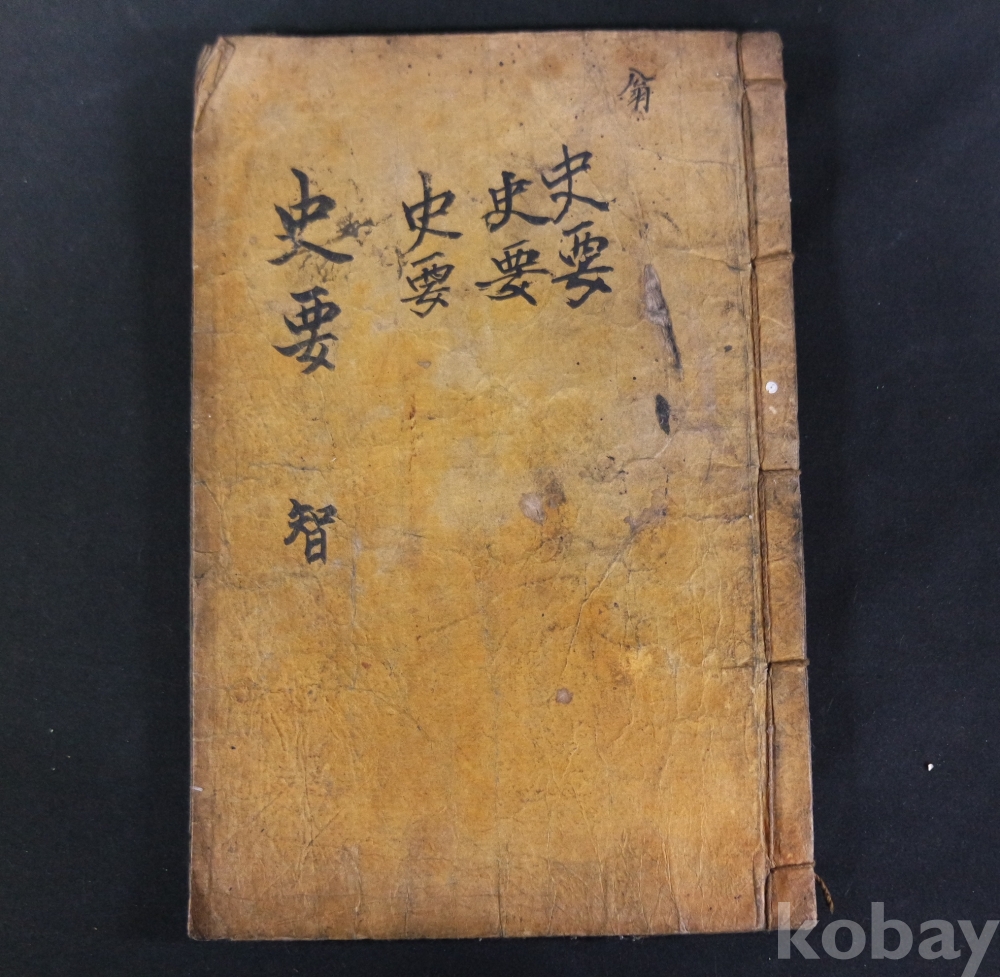 史要
史要
史要
史要 智
kobay